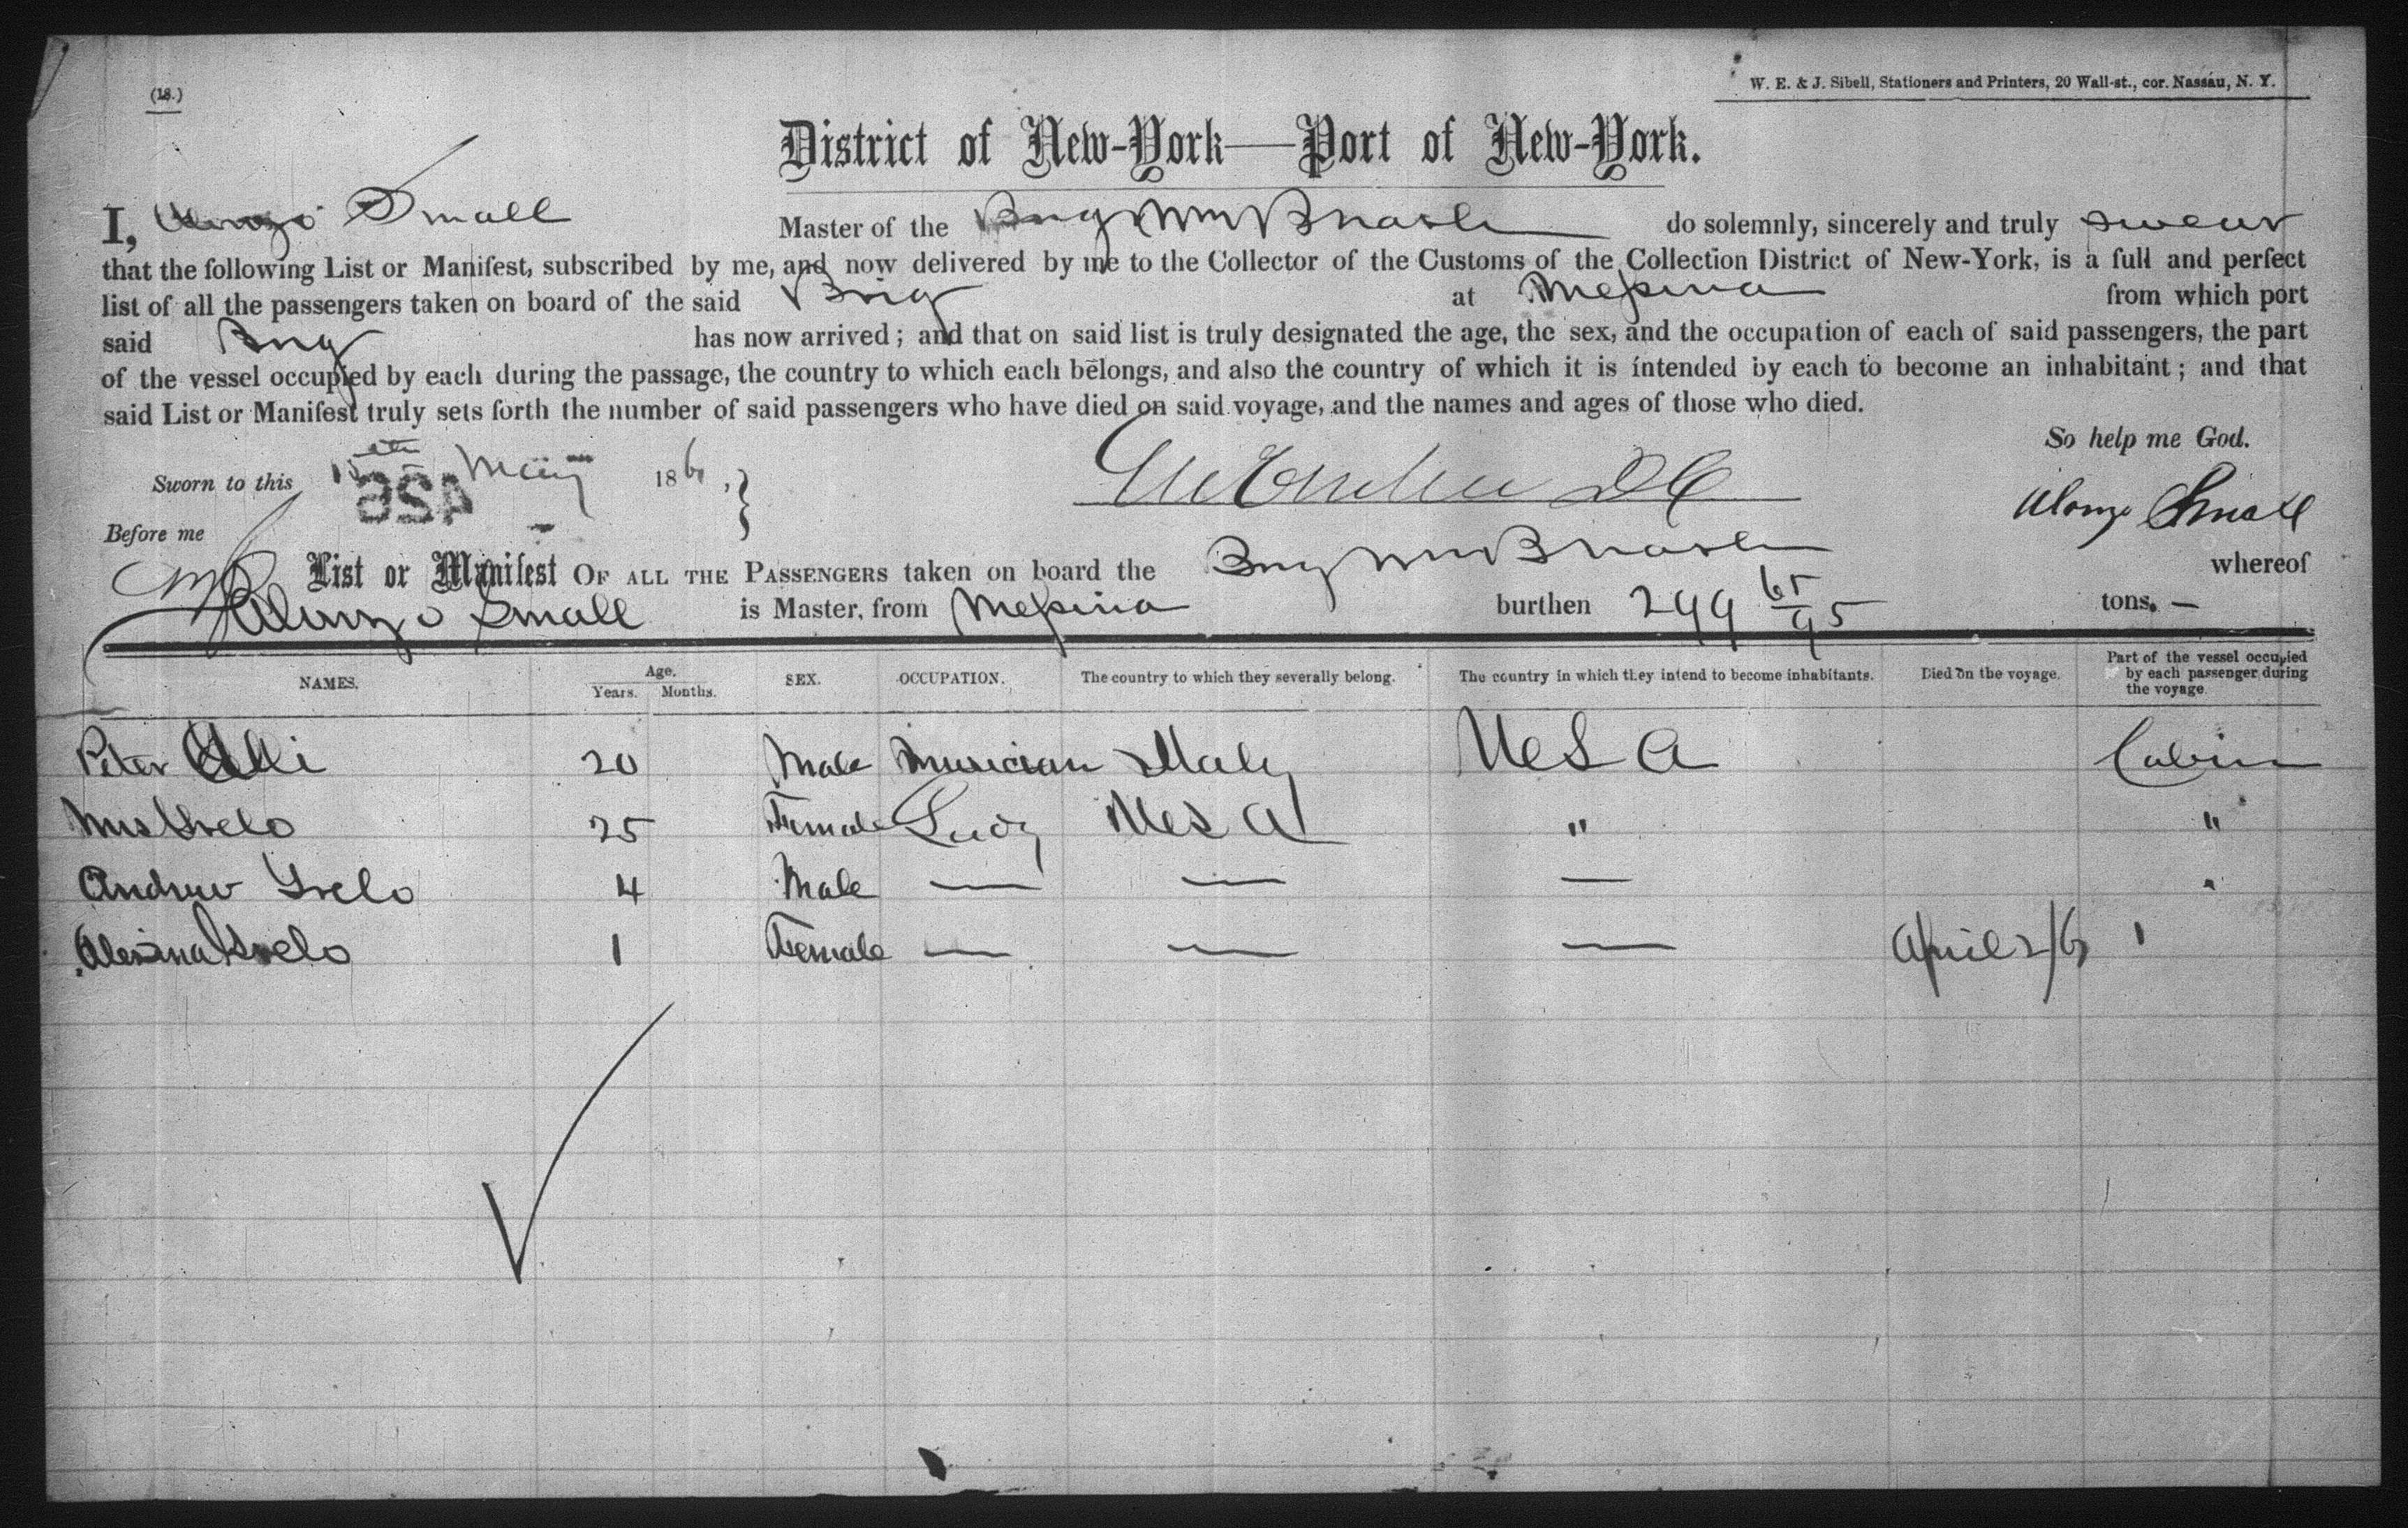 (18.)
W. E. & J. Sibell, Stationers and Printers, 20 Wall-st., cor. Nassau, N. Y.
District of New-York—Port of New-York.
I, Alonzo Small Master of the Brig Wm B Nash do solemnly, sincerely and truly swear
that the following List or Manifest, subscribed by me, and now delivered by me to the Collector of the Customs of the Collection District of New-York, is a full and perfect
list of all the passengers taken on board of the said Brig at Messina from which port
said Brig has now arrived; and that on said list is truly designated the age, the sex, and the occupation of each of said passengers, the part
of the vessel occupied by each during the passage, the country to which each belongs, and also the country of which it is intended by each to become an inhabitant; and that
said List or Manifest truly sets forth the number of said passengers who have died on said voyage, and the names and ages of those who died.
So help me God.
Sworn to this 15th May 186
425
Alonzo Small
Before me
List or Manifest OF ALL THE PASSENGERS taken on board the Brig Wm B Nash whereof
Alonzo Small is Master, from Messina burthen 299 65/95 tons. —
NAMES. Age. Years. Months. SEX. OCCUPATION. The country to which they severally belong. The country in which they intend to become inhabitants. Died on the voyage. Part of the vessel occupied by each passenger during the voyage
Peter 20 Male Musician Italy U S A Cabin
Mrs 25 Female Lady U S A " "
Andrew 4 Male — — — "
1 Female — — — April 2/61 "